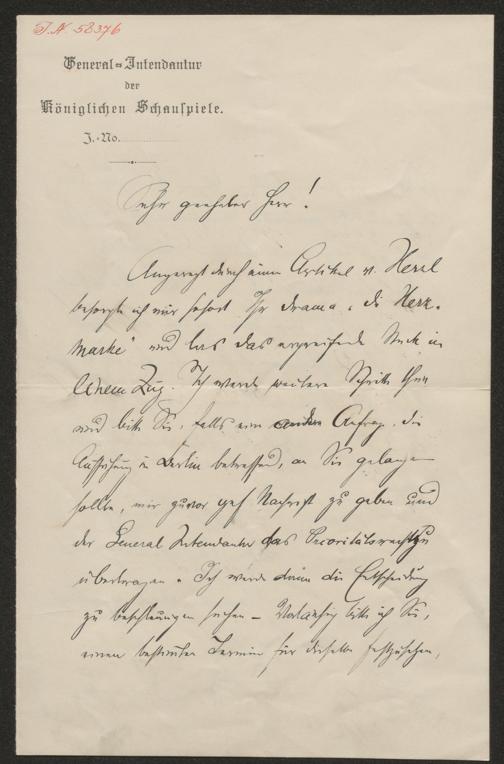 I.N. 58376
General-Intendantur
der
Königlichen Schauspiele.
J.-No.
Sehr geehrter Herr!
Angeregt durch einen Artikel v. Herzl
besorgte ich mir sofort Ihr Drama, „die
und las das ergreifende Stück in
Einem Zug. Ich werde weitere Schritte thun
und bitte Sie, falls eine andere Anfrage, die
Aufführung in Berlin betreffend, an Sie gelangen
sollte, mir zuvor gef. Nachricht zu geben und
der General Intendantur das Prioritätsrecht zu
übertragen. Ich werde dann die Entscheidung
zu beschleunigen suchen – Vorläufig bitte ich Sie,
einen bestimmten Termin für dieselbe festzusetzen,